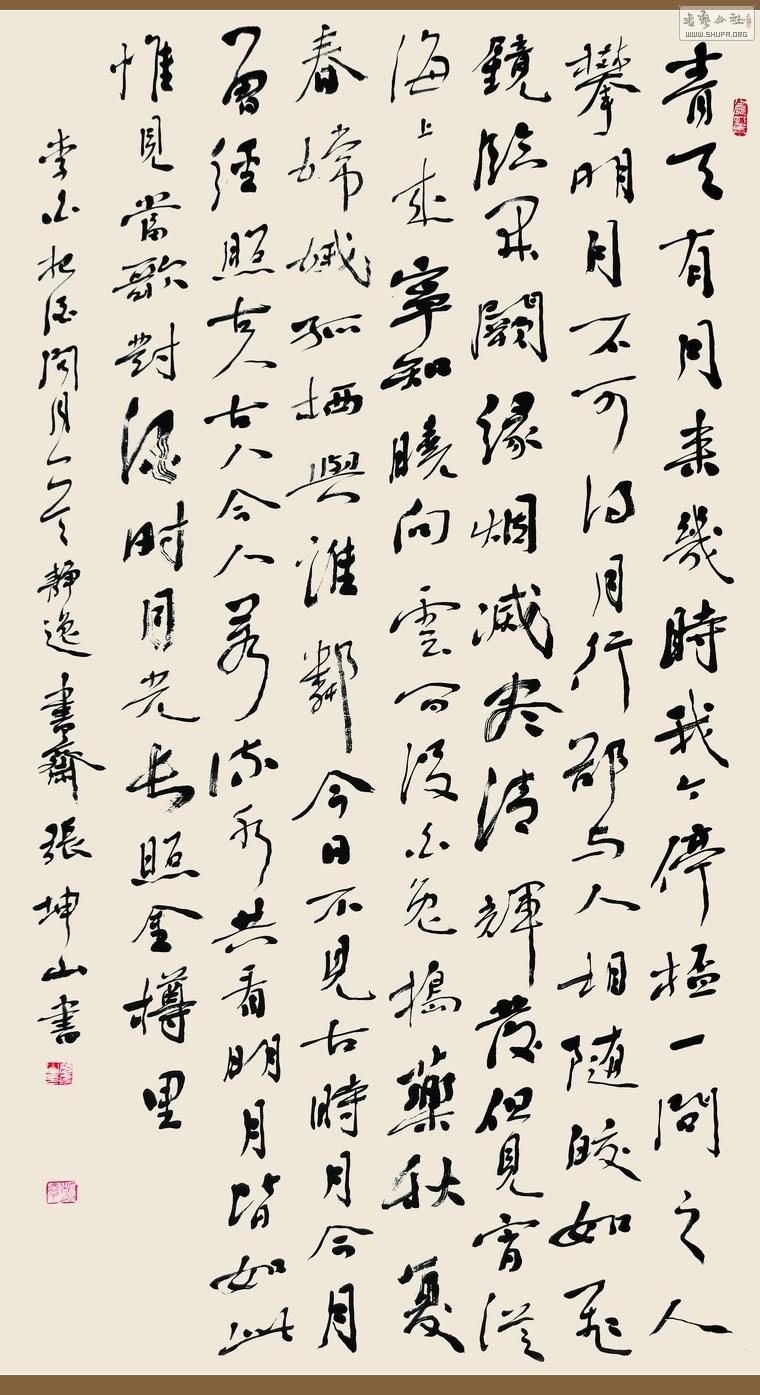 青天有月來幾時我今停桮一問之人
攀明月不可得月行卻与人相随皎如飛
鏡臨丹闕緣烟滅尽清輝發但見宵從
海上來寧知曉向雲间没白兔搗藥秋复
春嫦娥孤栖與誰鄰今日不見古時月今月
曾經照古人古人今人若流水共看明月皆如此
惟見當歌對酒時月光長照金樽里
李白把酒問月靜逸書齋張坤山書
书艺公社
WWW.SHUFA.ORG